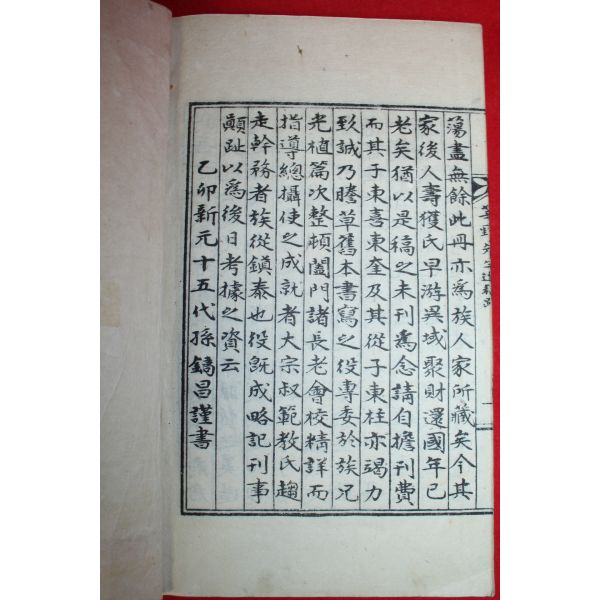 蕩盡無餘此冊亦爲族人家所藏矣今其
家後人壽獲氏早游異域聚財還國年已
老矣猶以是稿之未刊爲念請自擔刊費
而其子東喜東奎及其從子東柱亦竭力
致誠乃謄草舊本書寫之役專委於族兄
光植篇次整頓闔門諸長老會校精詳而
指導總攝使之成就者大宗叔範敎氏趨
走幹務者族從鎭泰也役旣成略記刊事
顚趾以爲後日考據之資云
乙卯新元十五代孫鎬昌謹書